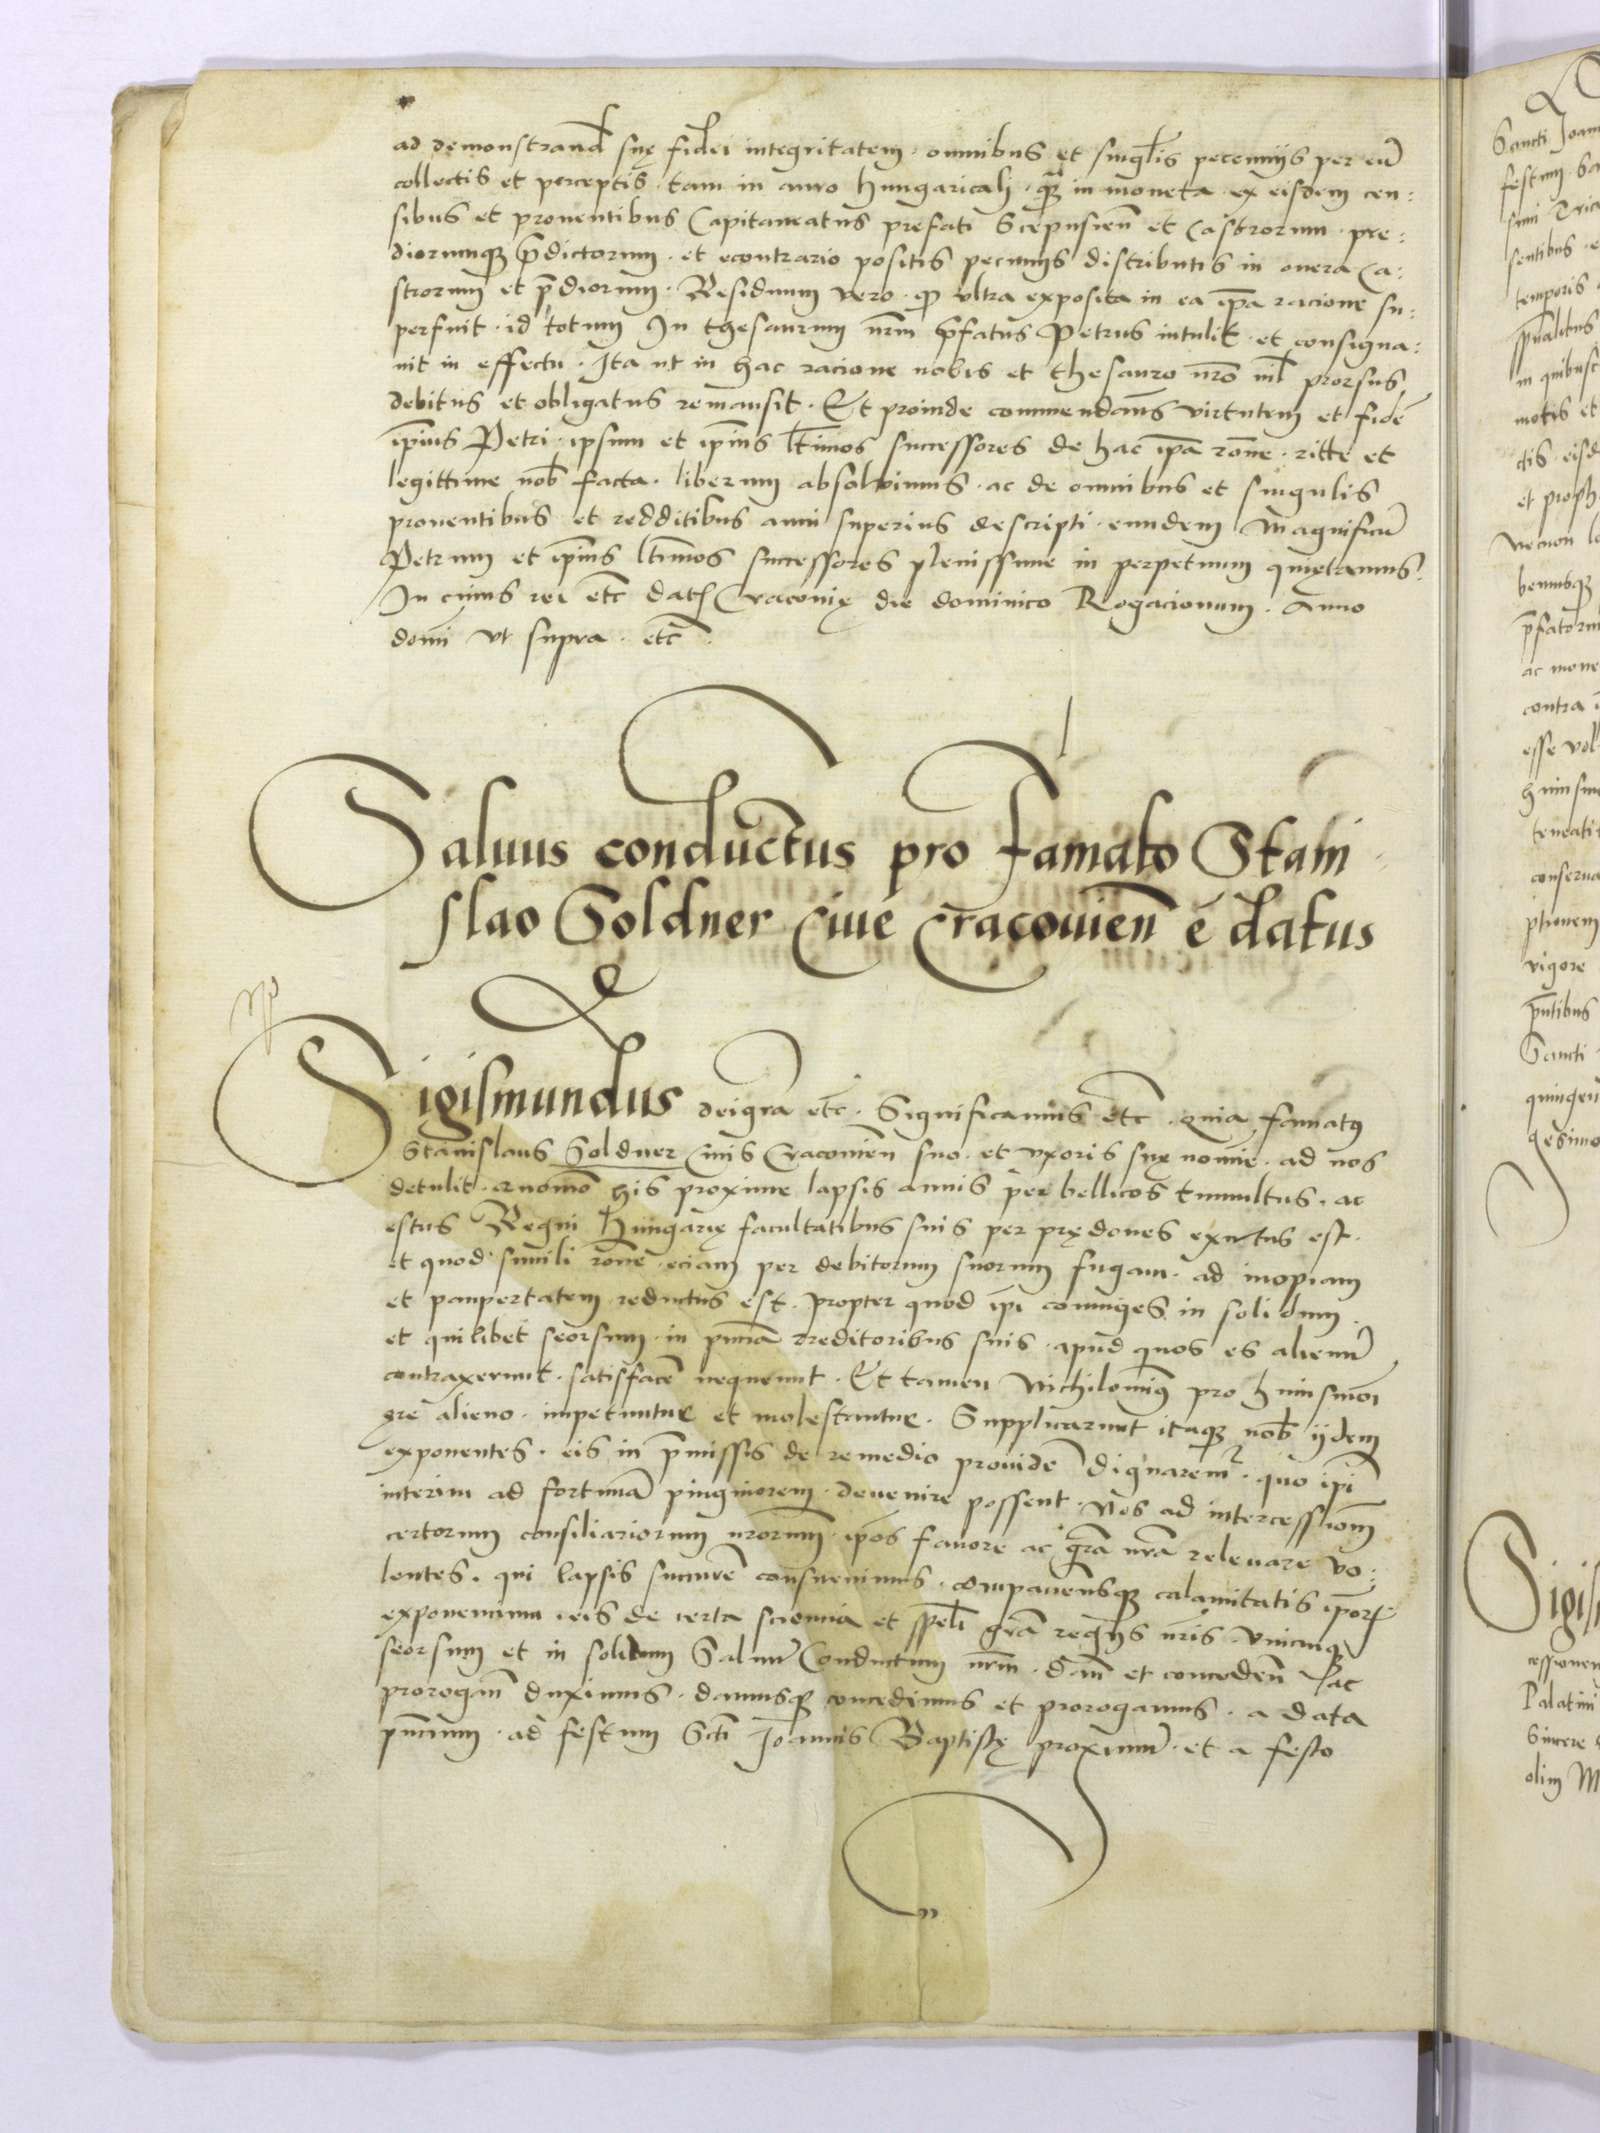 ad demonstrand suę fidei integritatem · omnibus et singlis pecuniis per eū
collectis et perceptis · tam in auro hungaricali · qm̄ in moneta · ex eisdem cen:
sibus et prouentibus Capitaneatus prefati Scepusien̄ et Castrorum · pre:
diorumq; p̄dictorum · et econtrario positis pecuniis distributis in onera Ca:
strorum et p̄diorum · Residuum vero · qd vltra exposita in ea ip̄a racione su:
perfuit · id totum In thesaurum nrm̄ p̄fatus Petrus intulit · et consigna:
uit in effectu · Ita ut in hac racione nobis et thesauro nr̄o nil prorsus
debitus et obligatus remansit · Et proinde commendans virtutem et fidē
ip̄ius Petri · ipsum et ip̄ius ltimos successores de hac ip̄a rōne · ritte et
legittime nob̄ facta · liberum absoluimus · ac de omnibus et singulis
prouentibus et redditibus anni superius descripti · eundem Magnificū
Petrum et ip̄ius ltīmos successores plenissime in perpetuum quietamus ·
In cuius rei etc̄ dat Cracouię die dominico Rogacionum · Anno
domi vt supra · etc̄ ·
Saluus conductus pro famato Stani
slao Soldner Ciue Cracouien̄ ē datus
Sigismundus dei gr̄a etc̄ · Significamus etc̄ · quia famatus
Stanislaus Soldner Ciuis Cracouien̄ suo · et vxoris suę noīe · ad nos
detulit · quomō his proxime lapsis annis per bellicos tumultus · ac
estus Regni Hungarię facultatibus suis per prędones exutus est ·
et quod simili rōne · eciam per debitorum suorum fugam · ad inopiam
et paupertatem reductus est · propter quod ip̄i coniuges in solidum ·
et quilibet seorsum · in pn̄ia creditoribus suis · apud quos es alienū
contraxerunt · satisfacē nequeunt · Et tamen Nichilominus pro huiusmoi
ęre alieno · impetuntur et molestantur · Supplicarunt itaq; nob̄ ijdem
exponentes · eis in p̄missis de remedio prouidē dignaremr · quo ip̄i
interim ad fortunā pinguiorem deuenire possent · Nos ad intercessionē
certorum consiliariorum nrorum · ip̄os fauore ac gr̄a nr̄a releuare vo:
lentes · qui lapsis succurrē consueuimus · compacientesq; calamitatis ip̄or
exponentium · eis de certa sciencia et sp̄eli gr̄a regijs nr̄is · vnicuiq;
seorsum et in solidum Saluū Conductum nrm̄ · dan̄ et conceden̄ · ac
prorogan̄ duximus · damusq; concedimus et prorogamus · a data
pn̄tium · ad festum Scti Joannis Baptistę proximū · et a festo